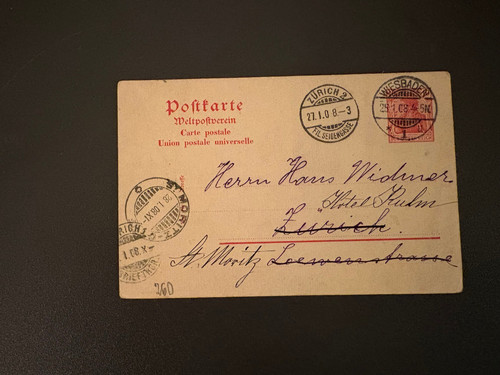 Postkarte
Weltpostverein
Carte postale
Union postale universelle
ZÜRICH 2
27.I.08.-3
FIL. SEIDENGASSE
WIESBADEN
1
Herrn Hans Widmer
"Hotel Kulm
Zürich.
St. Moritz Loewenstrasse
ST. MORITZ
28.I.08.IX-
6
260